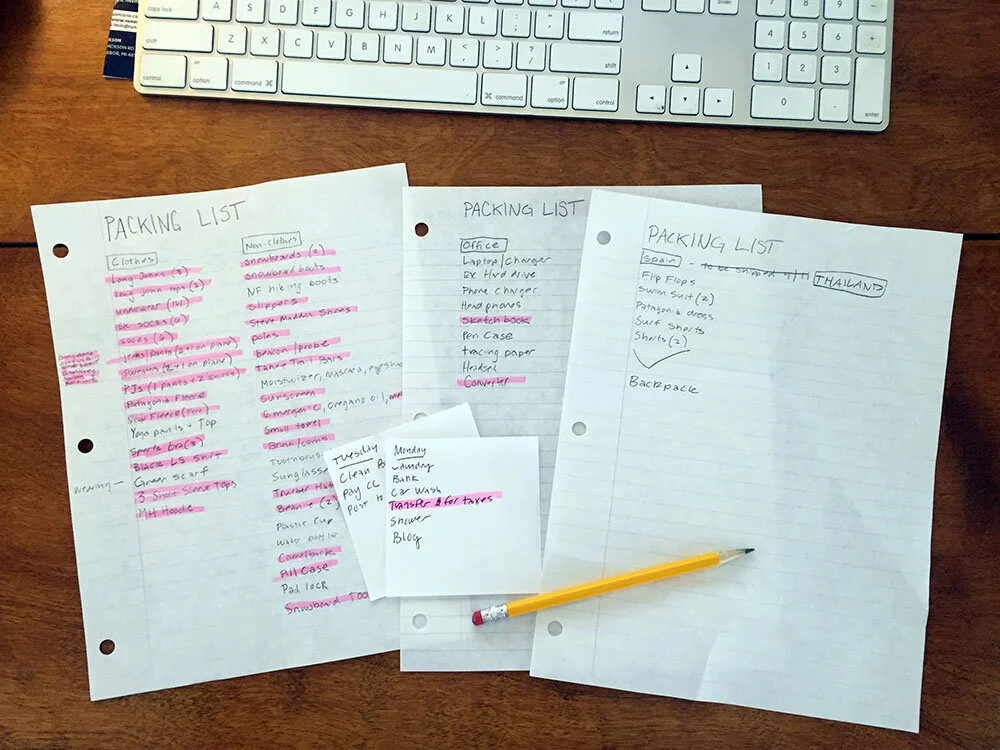 caps lock
A
S
D
F
G
H
J
K
L
return
shift
Z
X
C
V
B
N
M
shift
control
option
command
command
option
control
4
5
6
+
1
2
3
0
.
enter
PACKING LIST
Clothes
Long Johns (3)
long john tops (3)
underwear
SB socks (6)
socks (6)
jeans/pants (2+1 on plane)
Sweaters (2+1 on plane)
PJs (1 pants + 2 shorts)
Patagonia Fleece
Slip Fleece
Yoga pants + Top
Sports bra (3)
Black LS Shirt
wearing - Green Scarf
3 Short Sleeve Tops
MH Hoodie
Non-clothes
Snowboards (2)
snowboard boots
NF hiking boots
slippers
Steve Madden Shoes
poles
beacon/probe
Tahoe Trail Bars
Moisturizer, Mascara,
Sunscreen
Emergen-C, oregano oil,
Small towel
Brush/comb
Toothbrus
Sunglasse
Trucker Hat
Beanie (2)
Plastic Cup
Water bottle
Camelback
Pill Case
Pad lock
Snowboard Too
PACKING LIST
Office
Laptop/Charger
Ex Hard drive
Phone Charger
Headphones
Sketchbook
Pen Case
tracing paper
Headset
Converter
PACKING LIST
Spain - to be shipped w/ THAILAND
Flip Flops
Swim Suit (2)
Patagonia dress
Surf Shorts
Shorts (2)
Backpack
Tuesday
Clean B
Pay CC
Post to
Monday
Laundry
Bank
Car Wash
Transfer $ for taxes
Shower
Blog